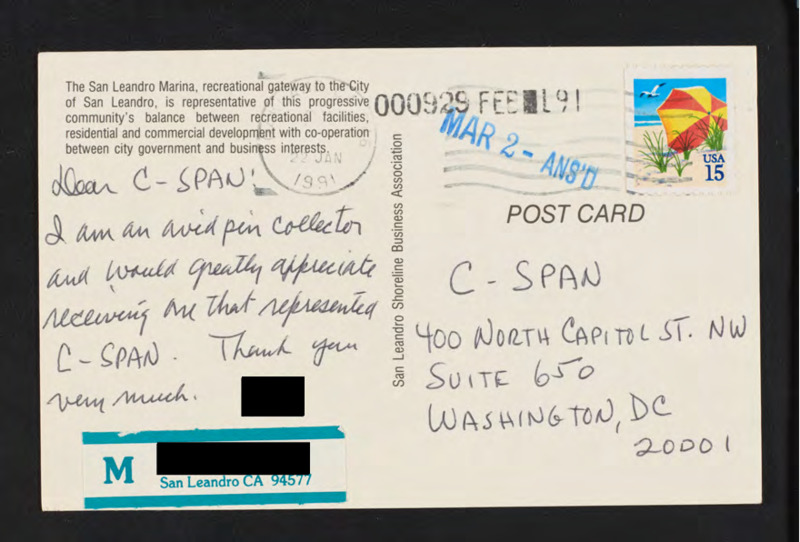 The San Leandro Marina, recreational gateway to the City
of San Leandro, is representative of this progressive
community's balance between recreational facilities,
residential and commercial development with co-operation
between city government and business interests.
22 JAN
1991
000929 FEB 1 91
MAR 2 - ANS'D
USA
15
POST CARD
Dear C-SPAN!
I am an avid pin collector
and would greatly appreciate
receiving one that represented
C-SPAN. Thank you
very much.
San Leandro Shoreline Business Association
C-SPAN
400 NORTH CAPITOL ST. NW
SUITE 650
WASHINGTON, DC
20001
M
San Leandro CA 94577